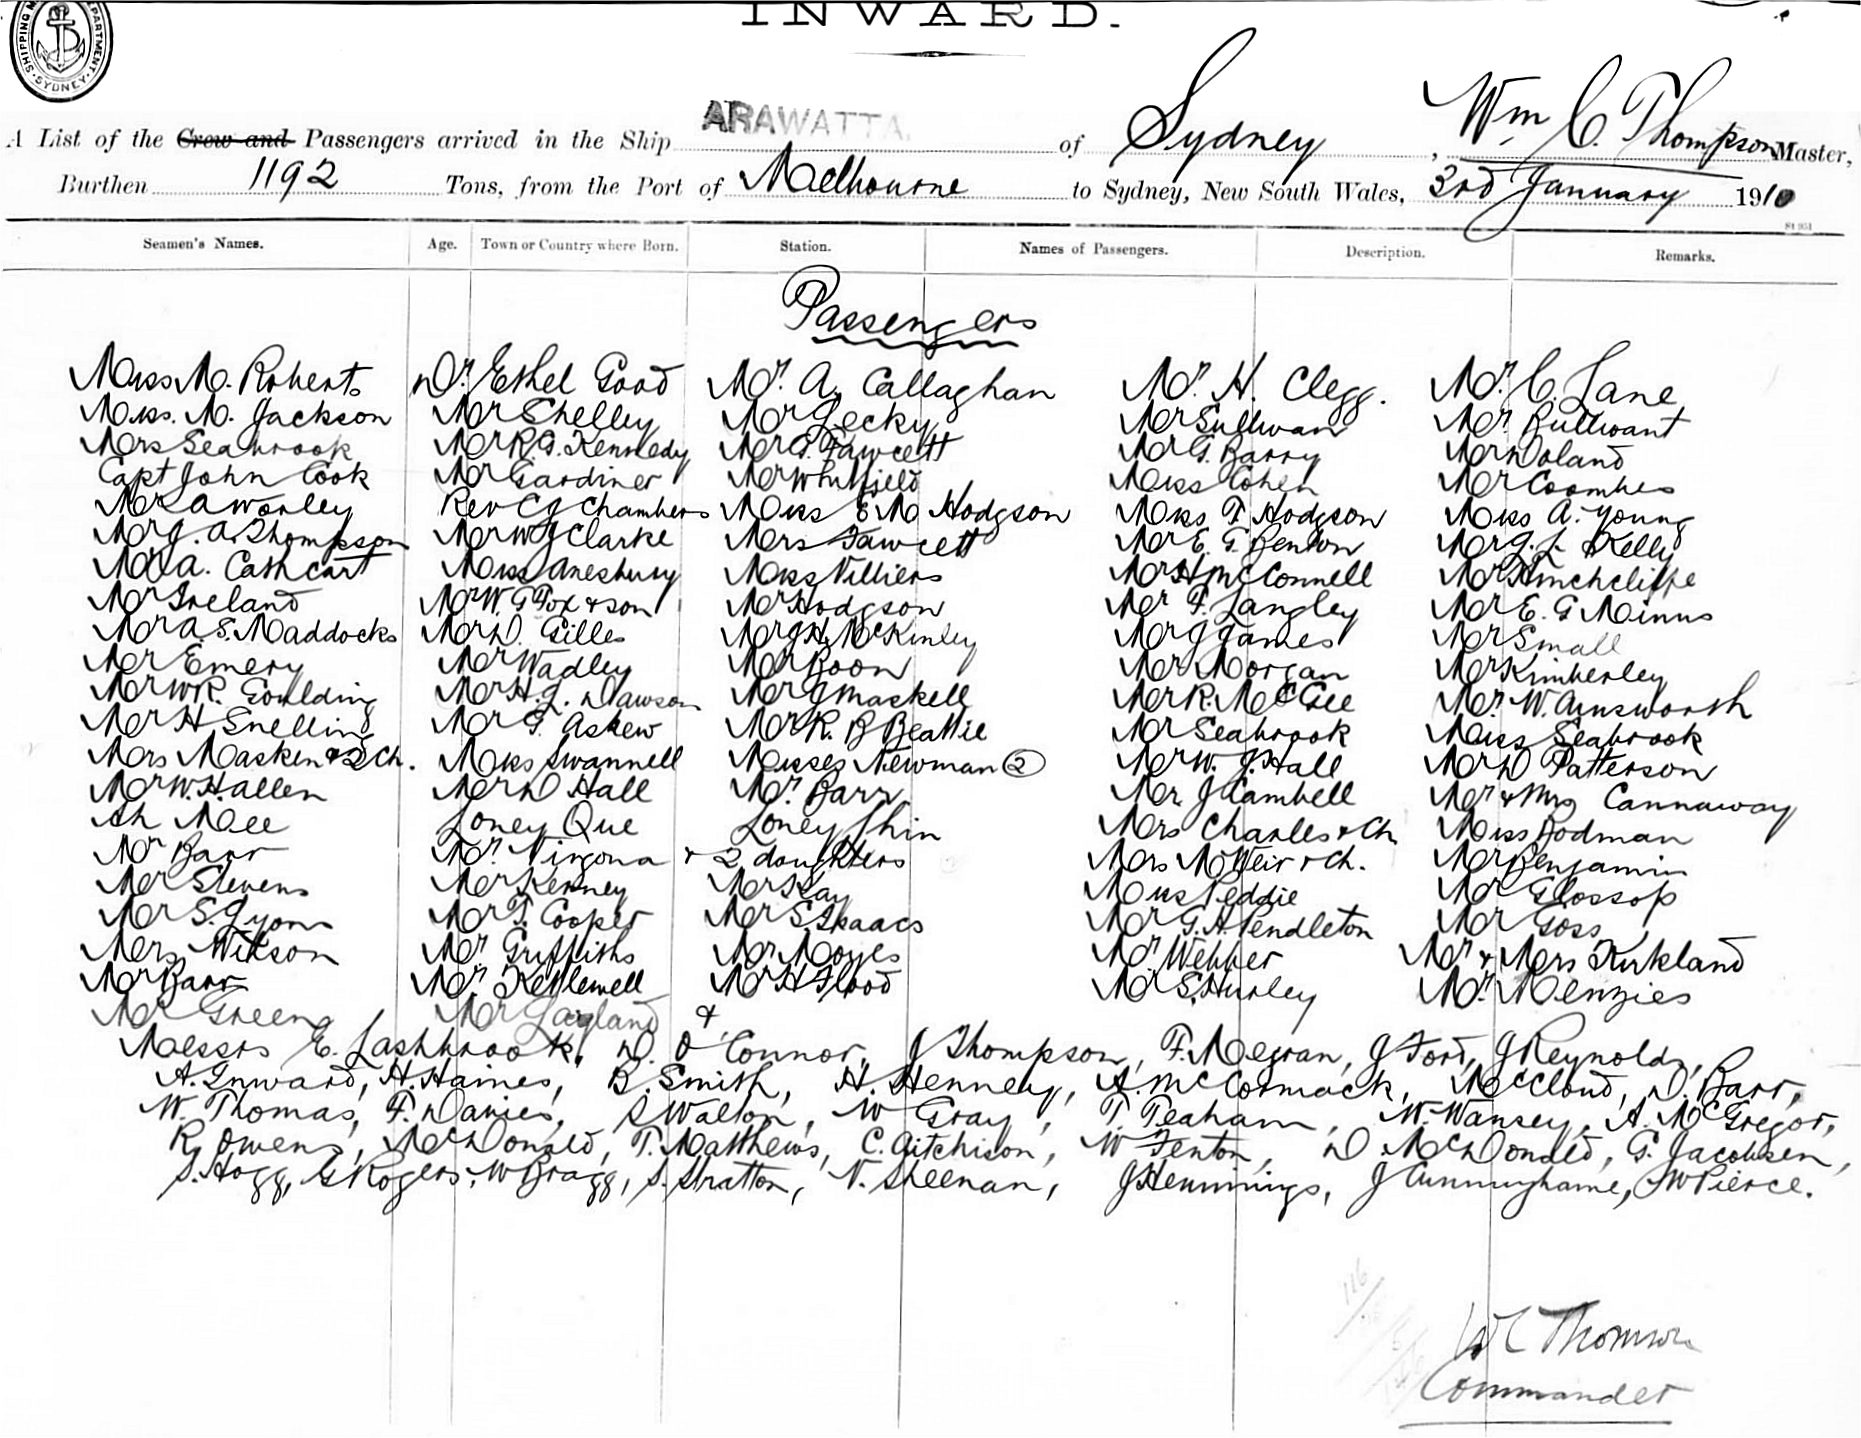 INWARD.
SHIPPING DEPARTMENT SYDNEY
A List of the Crew and Passengers arrived in the Ship ARAWATTA. of Sydney, Wm C. Thompson Master,
Burthen 1192 Tons, from the Port of Melbourne to Sydney, New South Wales, 3rd January 1910
Seamen's Names. Age. Town or Country where Born. Station. Names of Passengers. Description. Remarks.
Passengers
Miss M. Roberts Dr. Ethel Good Mr. A. Callaghan Mr. H. Clegg. Mr. C. Lane
Miss. M. Jackson Mr Shelley Mr Lecky Mr Sullivan Mr. Bullivant
Mrs Seabrook Mr R. G. Kennedy Mr G. Fawcett Mr G. Barry Mr Doland
Capt John Cook Mr Gardiner Mr Whitfield Miss Cohen Mr Coombes
Mr A Worley Rev C J Chambers Miss E M Hodgson Miss F Hodgson Miss A. Young
Mr J. A. Thompson Mr W J Clarke Mrs Fawcett Mr E. T. Benton Mr J. L. Kelly
Mr A. Cathcart Miss Anesbury Miss Villiers Mr H McConnell Mr Hinchcliffe
Mr Ireland Mr W. G Fox & son Mr Hodgson Mr F. Langley Mr E. G Minns
Mr A. S. Maddocks Mr D. Gilles Mr J H McKinley Mr J James Mr Small
Mr Emery Mr Wadley Mr Boon Mr Morgan Mr Kimberley
Mr W R. Goulding Mr H. L. Dawson Mr J Maskell Mr R. McGee Mr. W. Ainsworth
Mr H Snelling Mr G. Askew Mr R. B Beattie Mr Seabrook Miss Seabrook
Mrs Masken & 2 Ch. Miss Swannell Misses Newman 2 Mr W. J. Hall Mr D Patterson
Mr W. Hallen Mr D Hall Mr. Barr Mr J Cambell Mr & Mrs Cannaway
Ah Mee Loney Que Loney Shin Mrs Charles & Ch. Miss Bodman
Mr Barr Mr. Virgona & 2 daughters Mrs McWeir & Ch. Mr Benjamin
Mr Stevens Mr Kenney Mr Kay Miss Peddie Mr Glossop
Mr S. Lyons Mr T. Cooper Mr S. Isaacs Mr G. H Pendleton Mr Goss
Mrs Wilson Mr Griffiths Mr Moyes Mr Webber Mr & Mrs Kirkland
Mr Barr Mr Kettlewell Mr H Flood Mr S. Hurley Mr. Menzies
Mr Green Mr &
Messrs E. Lashbrook, D. O'Connor, J Thompson, F. Megran, J Ford, J Reynolds,
A. Inward, H. Haines, B. Smith, H. Hennely, A. McCormack, McCloud, D. Barr,
W. Thomas, F. Davies, S Walton, W Gray, T. Teaham, W. Wansey, A. McGregor,
R Owens, McDonald, T. Matthews, C. Aitchison, W Fenton, D McDonald, G. Jacobsen,
S. Hogg, G Rogers, W Bragg, S. Stratton, N. Sheenan, J Hennings, J Cunninghame, J W Pierce.
W C Thomson
Commander